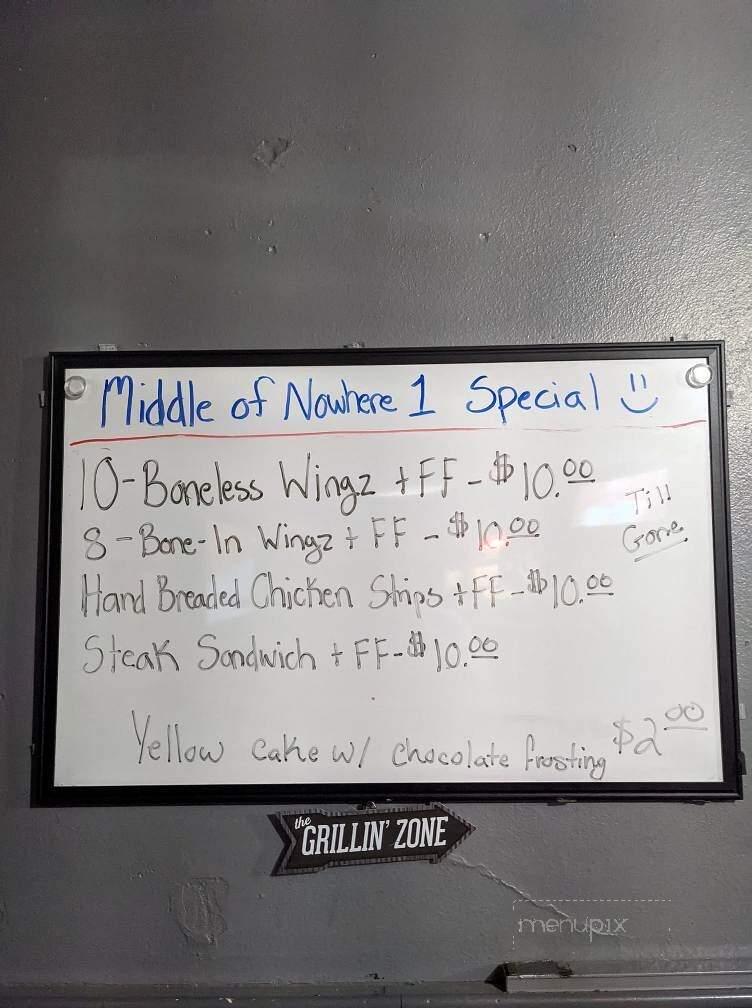 Middle of Nowhere 1 Special
10-Boneless Wingz + FF - $10.00
Till
8-Bone-In Wingz + FF - $10.00
Gone
Hand Breaded Chicken Strips + FF - $10.00
Steak Sandwich + FF - $10.00
Yellow cake w/ chocolate frosting $2.00
the
GRILLIN' ZONE
menupix